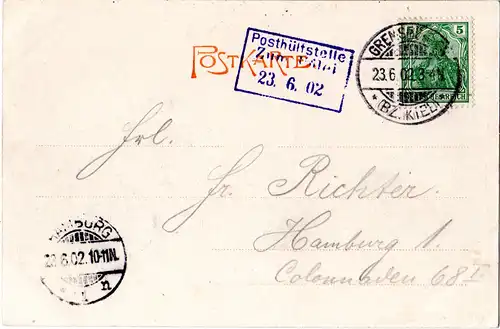 POSTKARTE
Posthülfstelle
23. 6. 02
5
23.6.02.3-4N.
(BZ. KIEL)
Frl.
Fr. Richter
Hamburg 1.
Colonnaden 68 I
HAMBURG
23.6.02.10-11N.
1 n